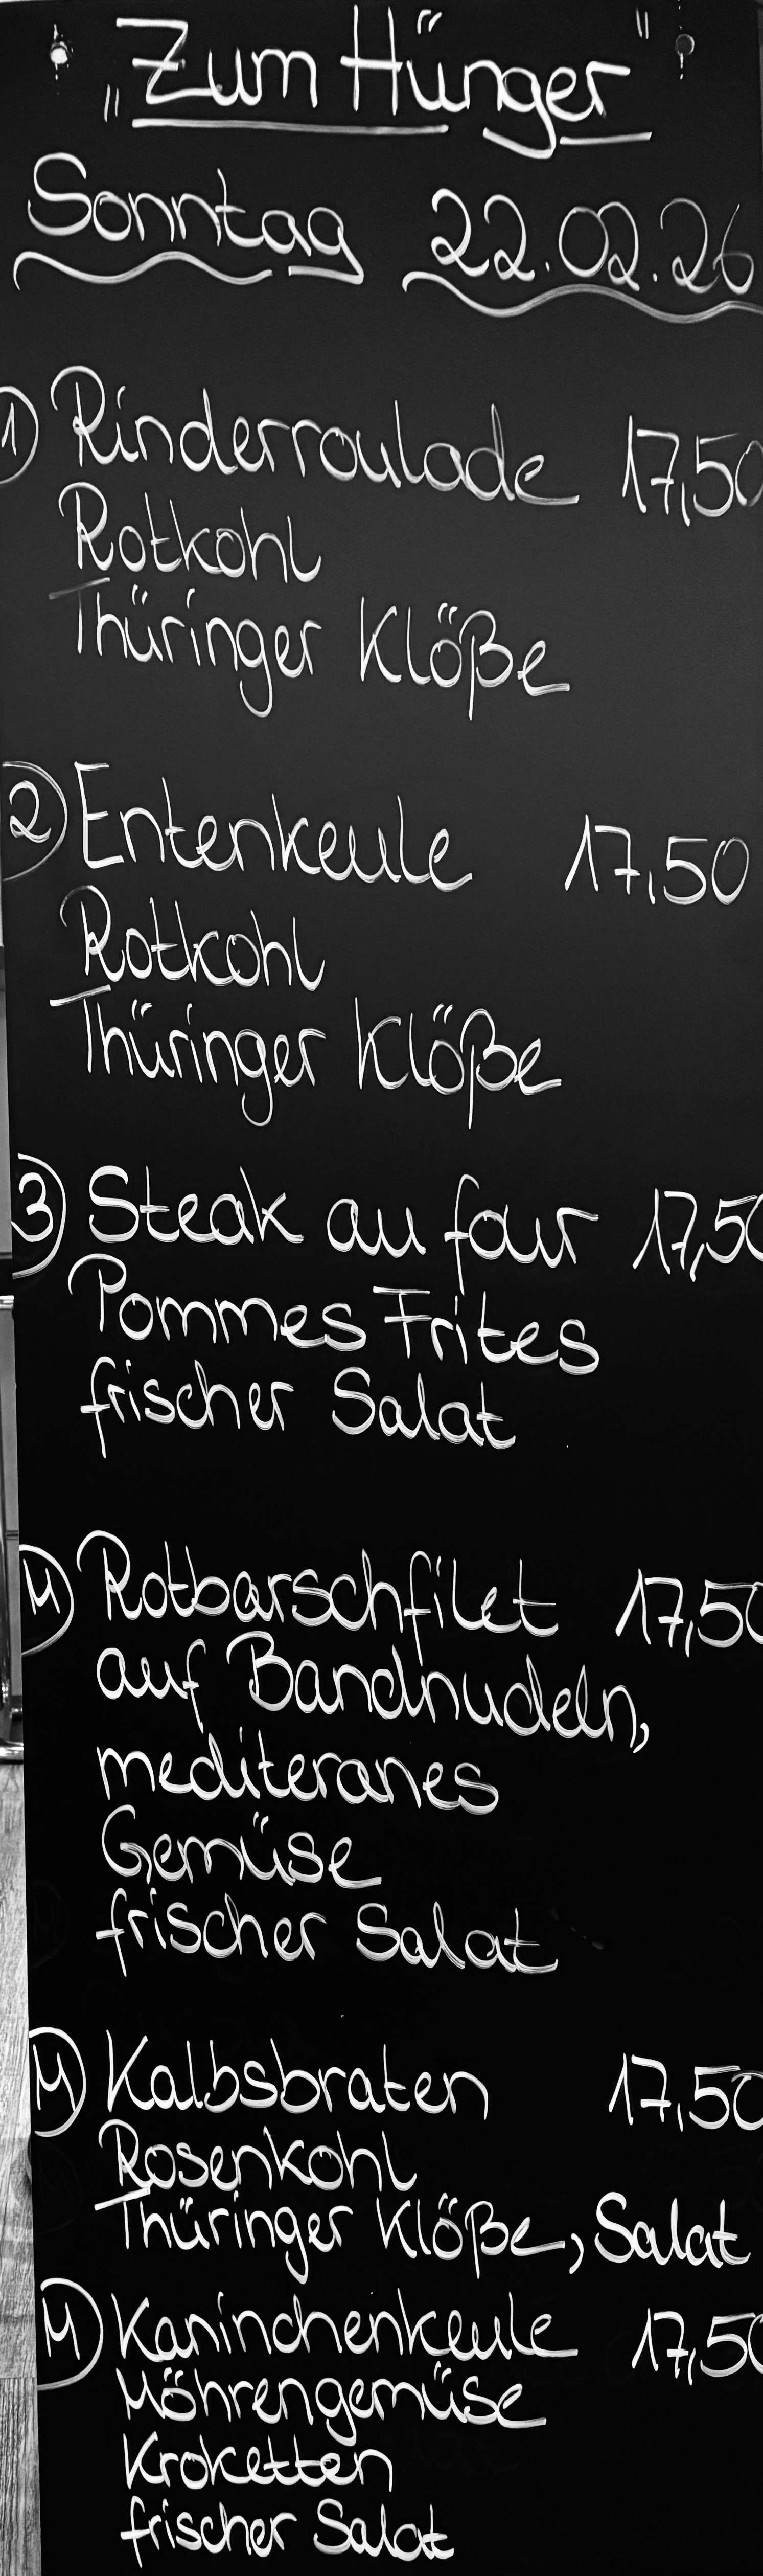 „Zum Hünger"
Sonntag 22.02.26
1 Rinderroulade 17,50
Rotkohl
Thüringer Klöße
2 Entenkeule 17,50
Rotkohl
Thüringer Klöße
3 Steak au four 17,50
Pommes Frites
frischer Salat
4 Rotbarschfilet 17,50
auf Bandnudeln,
mediteranes
Gemüse
frischer Salat
4 Kalbsbraten 17,50
Rosenkohl
Thüringer Klöße, Salat
4 Kaninchenkeule 17,50
Möhrengemüse
Kroketten
frischer Salat